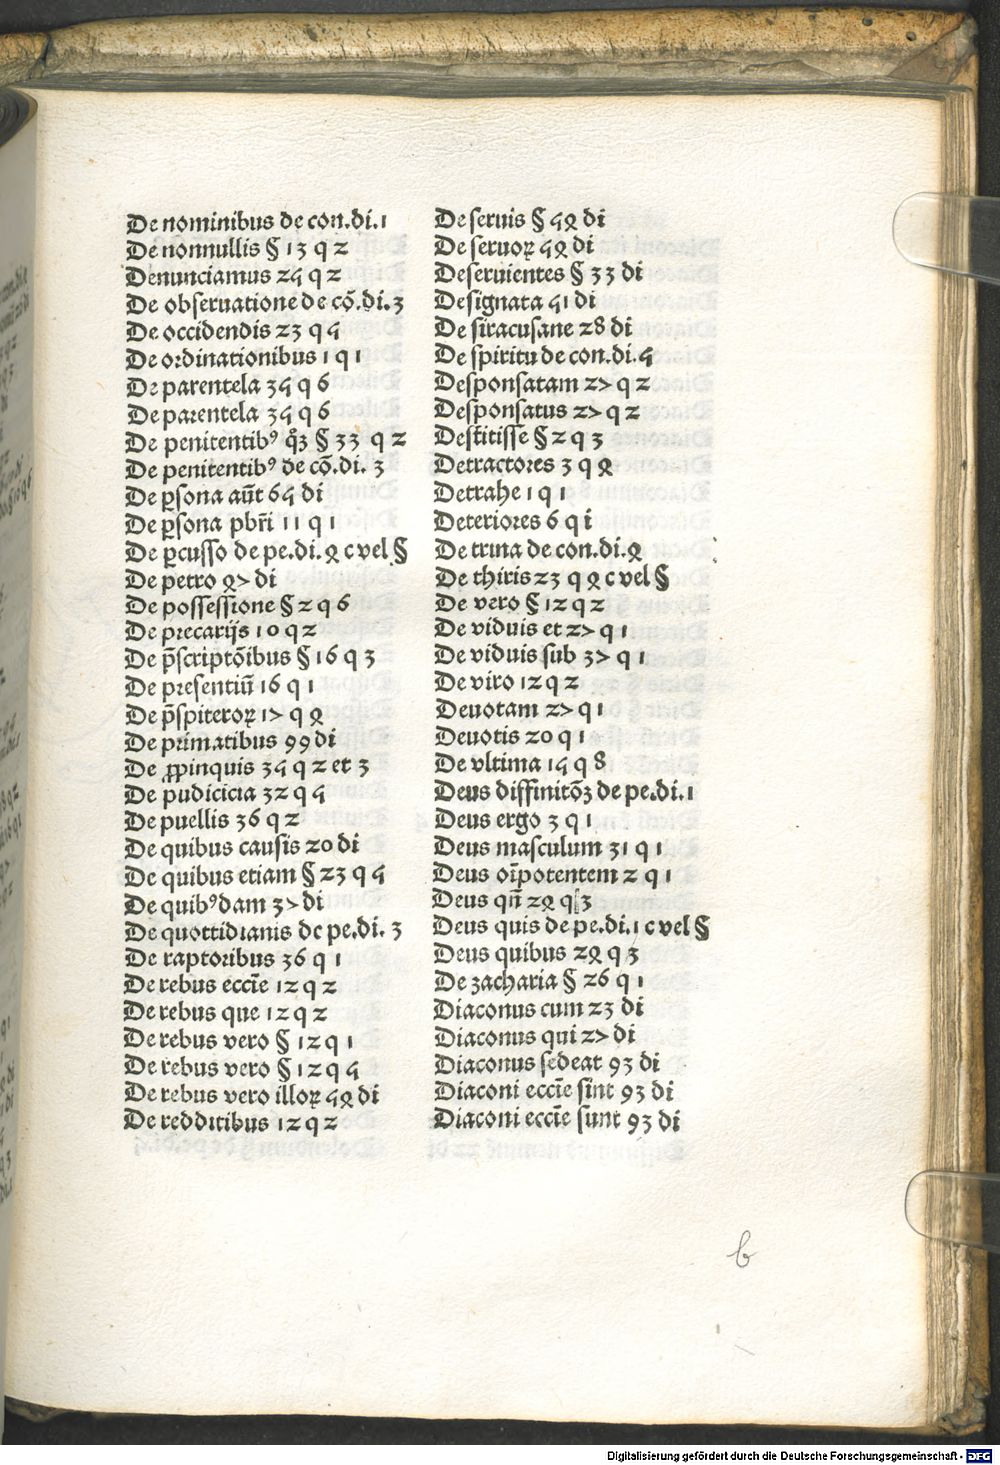 De nominibus de con.di.1
De nonnullis § 13 q 2
Denunciamus 25 q 2
De obseruatione de cō.di.3
De occidendis 23 q 5
De ordinationibus 1 q 1
De parentela 35 q 6
De parentela 35 q 6
De penitentibꝰ q̊ꝫ § 33 q 2
De penitentibꝰ de cō.di. 3
De ꝑsona aūt 65 di
De ꝑsona pbr̄i 11 q 1
De ꝑcusso de pe.di. 4 c vel §
De petro 47 di
De possessione § 2 q 6
De precarijs 10 q 2
De p̄scriptōibus § 16 q 3
De presentiū 16 q 1
De p̄spiteroꝝ 17 q 4
De primatibus 99 di
De ꝓpinquis 35 q 2 et 3
De pudicicia 32 q 5
De puellis 36 q 2
De quibus causis 20 di
De quibus etiam § 23 q 5
De quibꝰdam 37 di
De quottidianis de pe.di. 3
De raptoribus 36 q 1
De rebus eccīe 12 q 2
De rebus que 12 q 2
De rebus vero § 12 q 1
De rebus vero § 12 q 5
De rebus vero illoꝝ 54 di
De redditibus 12 q 2
De seruis § 54 di
De seruoꝝ 54 di
Deseruientes § 33 di
Designata 51 di
De siracusane 28 di
De spiritu de con.di.5
Desponsatam 27 q 2
Desponsatus 27 q 2
Destitisse § 2 q 3
Detractores 3 q 4
Detrahe 1 q 1
Deteriores 6 q i
De trina de con.di.4
De thiris 23 q 4 c vel §
De vero § 12 q 2
De viduis et 27 q 1
De viduis sub 37 q 1
De viro 12 q 2
Deuotam 27 q 1
Deuotis 20 q 1
De vltima 15 q 8
Deus diffinitōꝫ de pe.di.1
Deus ergo 3 q 1
Deus masculum 31 q 1
Deus oīpotentem 2 q 1
Deus qn̄ 24 q 3
Deus quis de pe.di.1 c vel §
Deus quibus 24 q 3
De zacharia § 26 q 1
Diaconus cum 23 di
Diaconus qui 27 di
Diaconus sedeat 93 di
Diaconi eccīe sint 93 di
Diaconi eccīe sunt 93 di
b
Digitalisierung gefördert durch die Deutsche Forschungsgemeinschaft - DFG